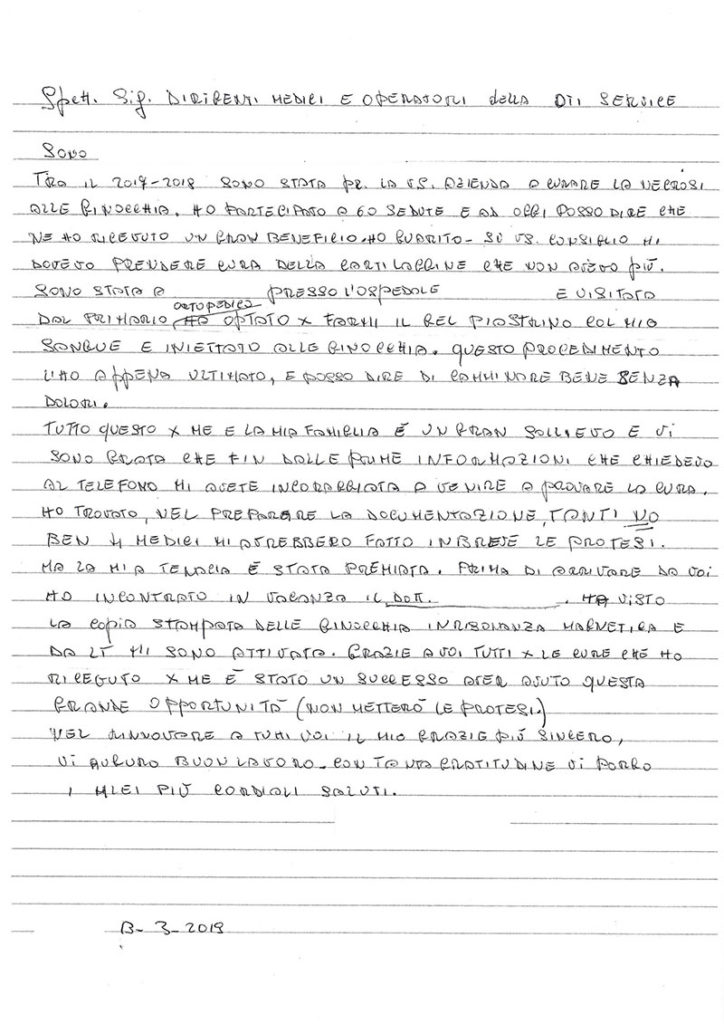 Spett. Sig. DIRIGENTI MEDICI E OPERATORI della OTI SERVICE
SONO
TRA IL 2017-2018 SONO STATA PR. LA VS. AZIENDA A CURARE LA NECROSI
ALLE GINOCCHIA. HO PARTECIPATO A 60 SEDUTE E AD OGGI POSSO DIRE CHE
NE HO RICEVUTO UN GRAN BENEFICIO. HO GUARITO - SU VS. CONSIGLIO MI
DOVEVO PRENDERE CURA DELLA CARTILAGGINE CHE NON AVEVO PIÙ.
SONO STATA A PRESSO L'OSPEDALE E VISITATA
DAL PRIMARIO ORTOPEDICO HA OPTATO X FARMI IL GEL PIASTRINO COL MIO
SANGUE E INIETTATO ALLE GINOCCHIA. QUESTO PROCEDIMENTO
L'HO APPENA ULTIMATO, E POSSO DIRE DI CAMMINARE BENE SENZA
DOLORI.
TUTTO QUESTO X ME E LA MIA FAMIGLIA È UN GRAN SOLLIEVO E VI
SONO GRATA CHE FIN DALLE PRIME INFORMAZIONI CHE CHIEDEVO
AL TELEFONO MI AVETE INCORAGGIATA A VENIRE A PROVARE LA CURA.
HO TROVATO, NEL PREPARARE LA DOCUMENTAZIONE, TANTI NO
BEN 4 MEDICI MI AVREBBERO FATTO IN BREVE LE PROTESI.
MA LA MIA TENACIA È STATA PREMIATA. PRIMA DI ARRIVARE DA VOI
HO INCONTRATO IN VACANZA IL DOTT. . HA VISTO
LA COPIA STAMPATA DELLE GINOCCHIA IN RISONANZA MAGNETICA E
DA LÌ MI SONO ATTIVATA. GRAZIE A VOI TUTTI X LE CURE CHE HO
RICEVUTO X ME È STATO UN SUCCESSO AVER AVUTO QUESTA
GRANDE OPPORTUNITÀ (NON METTERÒ LE PROTESI.)
NEL RINNOVARE A TUTTI VOI IL MIO GRAZIE PIÙ SINCERO,
VI AUGURO BUON LAVORO - CON TANTA GRATITUDINE VI PORGO
I MIEI PIÙ CORDIALI SALUTI.
13-3-2019